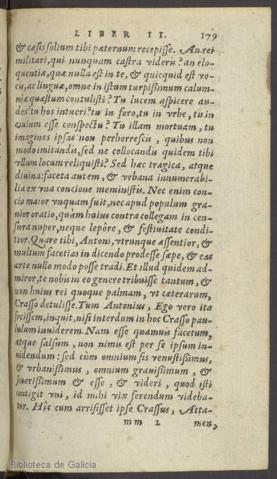 LIBER II. 179
& cæsis solium tibi paternum recepisse. An rei
militari, qui nunquam castra videris? an elo-
quentia, quæ nulla est in te, & quicquid est vo-
cis, ac linguæ, omne in istum turpißimum calum-
niæ quæstum contulisti? Tu lucem aspicere au-
des? tu hos intueri? tu in foro, tu in vrbe, tu in
ciuium esse conspectu? Tu illam mortuam, tu
imagines ipsas non perhorrescis, quibus non
modo imitandis, sed ne collocandis quidem tibi
vllum locum reliquisti? Sed hæc tragica, atque
diuina: faceta autem, & vrbana innumerabi-
lia ex vna concione meministis. Nec enim con-
cio maior vnquam fuit, nec apud populum gra-
uior oratio, quàm huius contra collegam in cen-
sura nuper, neque lepôre, & festiuitate condi-
tior. Quare tibi, Antoni, vtrunque assentior, &
multum facetias in dicendo prodesse sæpe, & eas
arte nullo modo posse tradi. Et illud quidem ad-
miror, te nobis in eo genere tribuisse tantum, &
non huius rei quoque palmam, vt cæterarum,
Crasso detulisse. Tum Antonius, Ego vero ita
fecissem, inquit, nisi interdum in hoc Crasso pau-
lulum inuiderem. Nam esse quamuis facetum,
atque salsum, non nimis est per se ipsum in-
uidendum: sed cùm omnium sis venustißimus,
& vrbanißimus, omnium grauißimum, &
seuerißimum & esse, & videri, quod isti
contigit vni, id mihi vix ferendum videba-
tur. Hîc cum arrisisset ipse Crassus, Atta-
mm 2 men,
Biblioteca de Galicia